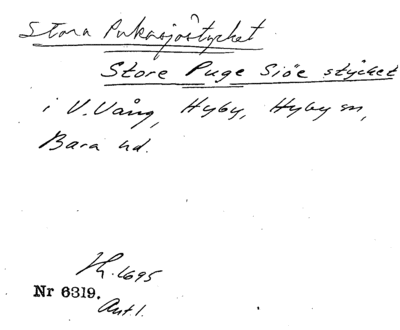 Stora Pukasjöstycket
Store Puge Siöe stÿcket
i V. Vång, Hyby, Hyby sn,
Bara hd.
Lh. 1695
Nr 6319.
Ant 1.